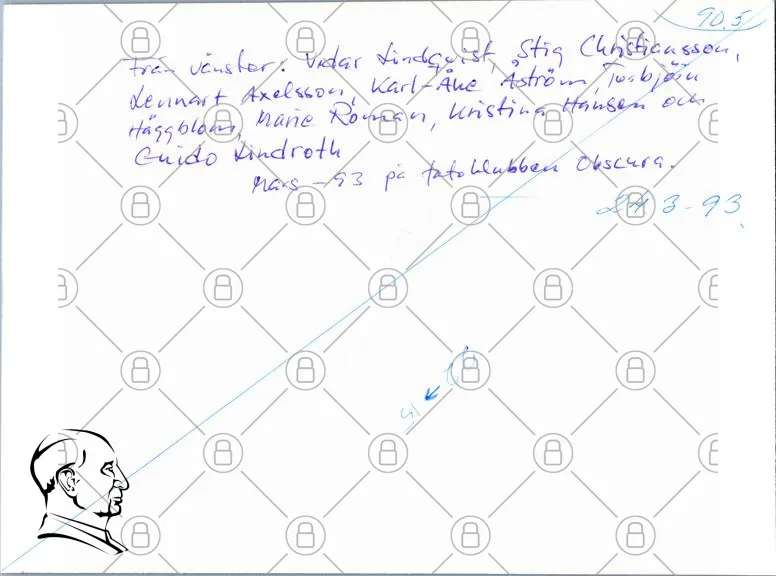 90.5
Från vänster: Vidar Lindqvist, Stig Christiansson,
Lennart Axelsson, Karl-Åke Åström, Torbjörn
Häggblom, Marie Roman, Kristina Hansen och
Guido Lindroth
Mars -93 på fotoklubben Obscura.
24 3-93